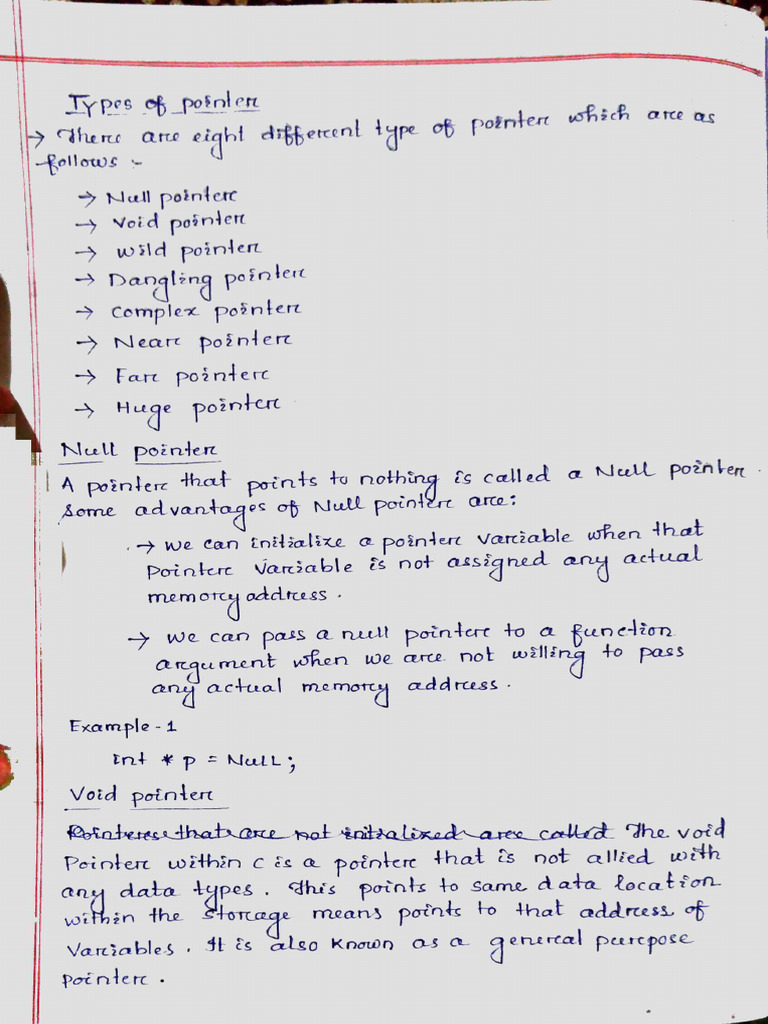 Types of pointer
→ There are eight different type of pointer which are as
follows :-
→ Null pointer
→ Void pointer
→ Wild pointer
→ Dangling pointer
→ Complex pointer
→ Near pointer
→ Far pointer
→ Huge pointer
Null pointer
A pointer that points to nothing is called a Null pointer.
Some advantages of Null pointer are:
→ We can initialize a pointer variable when that
Pointer Variable is not assigned any actual
memory address.
→ We can pass a null pointer to a function
argument when we are not willing to pass
any actual memory address.
Example-1
int * p = NULL;
Void pointer
Pointeres that are not initialized are called The void
Pointer within C is a pointer that is not allied with
any data types. This points to same data location
within the storage means points to that address of
Variables. It is also known as a general purpose
pointer.